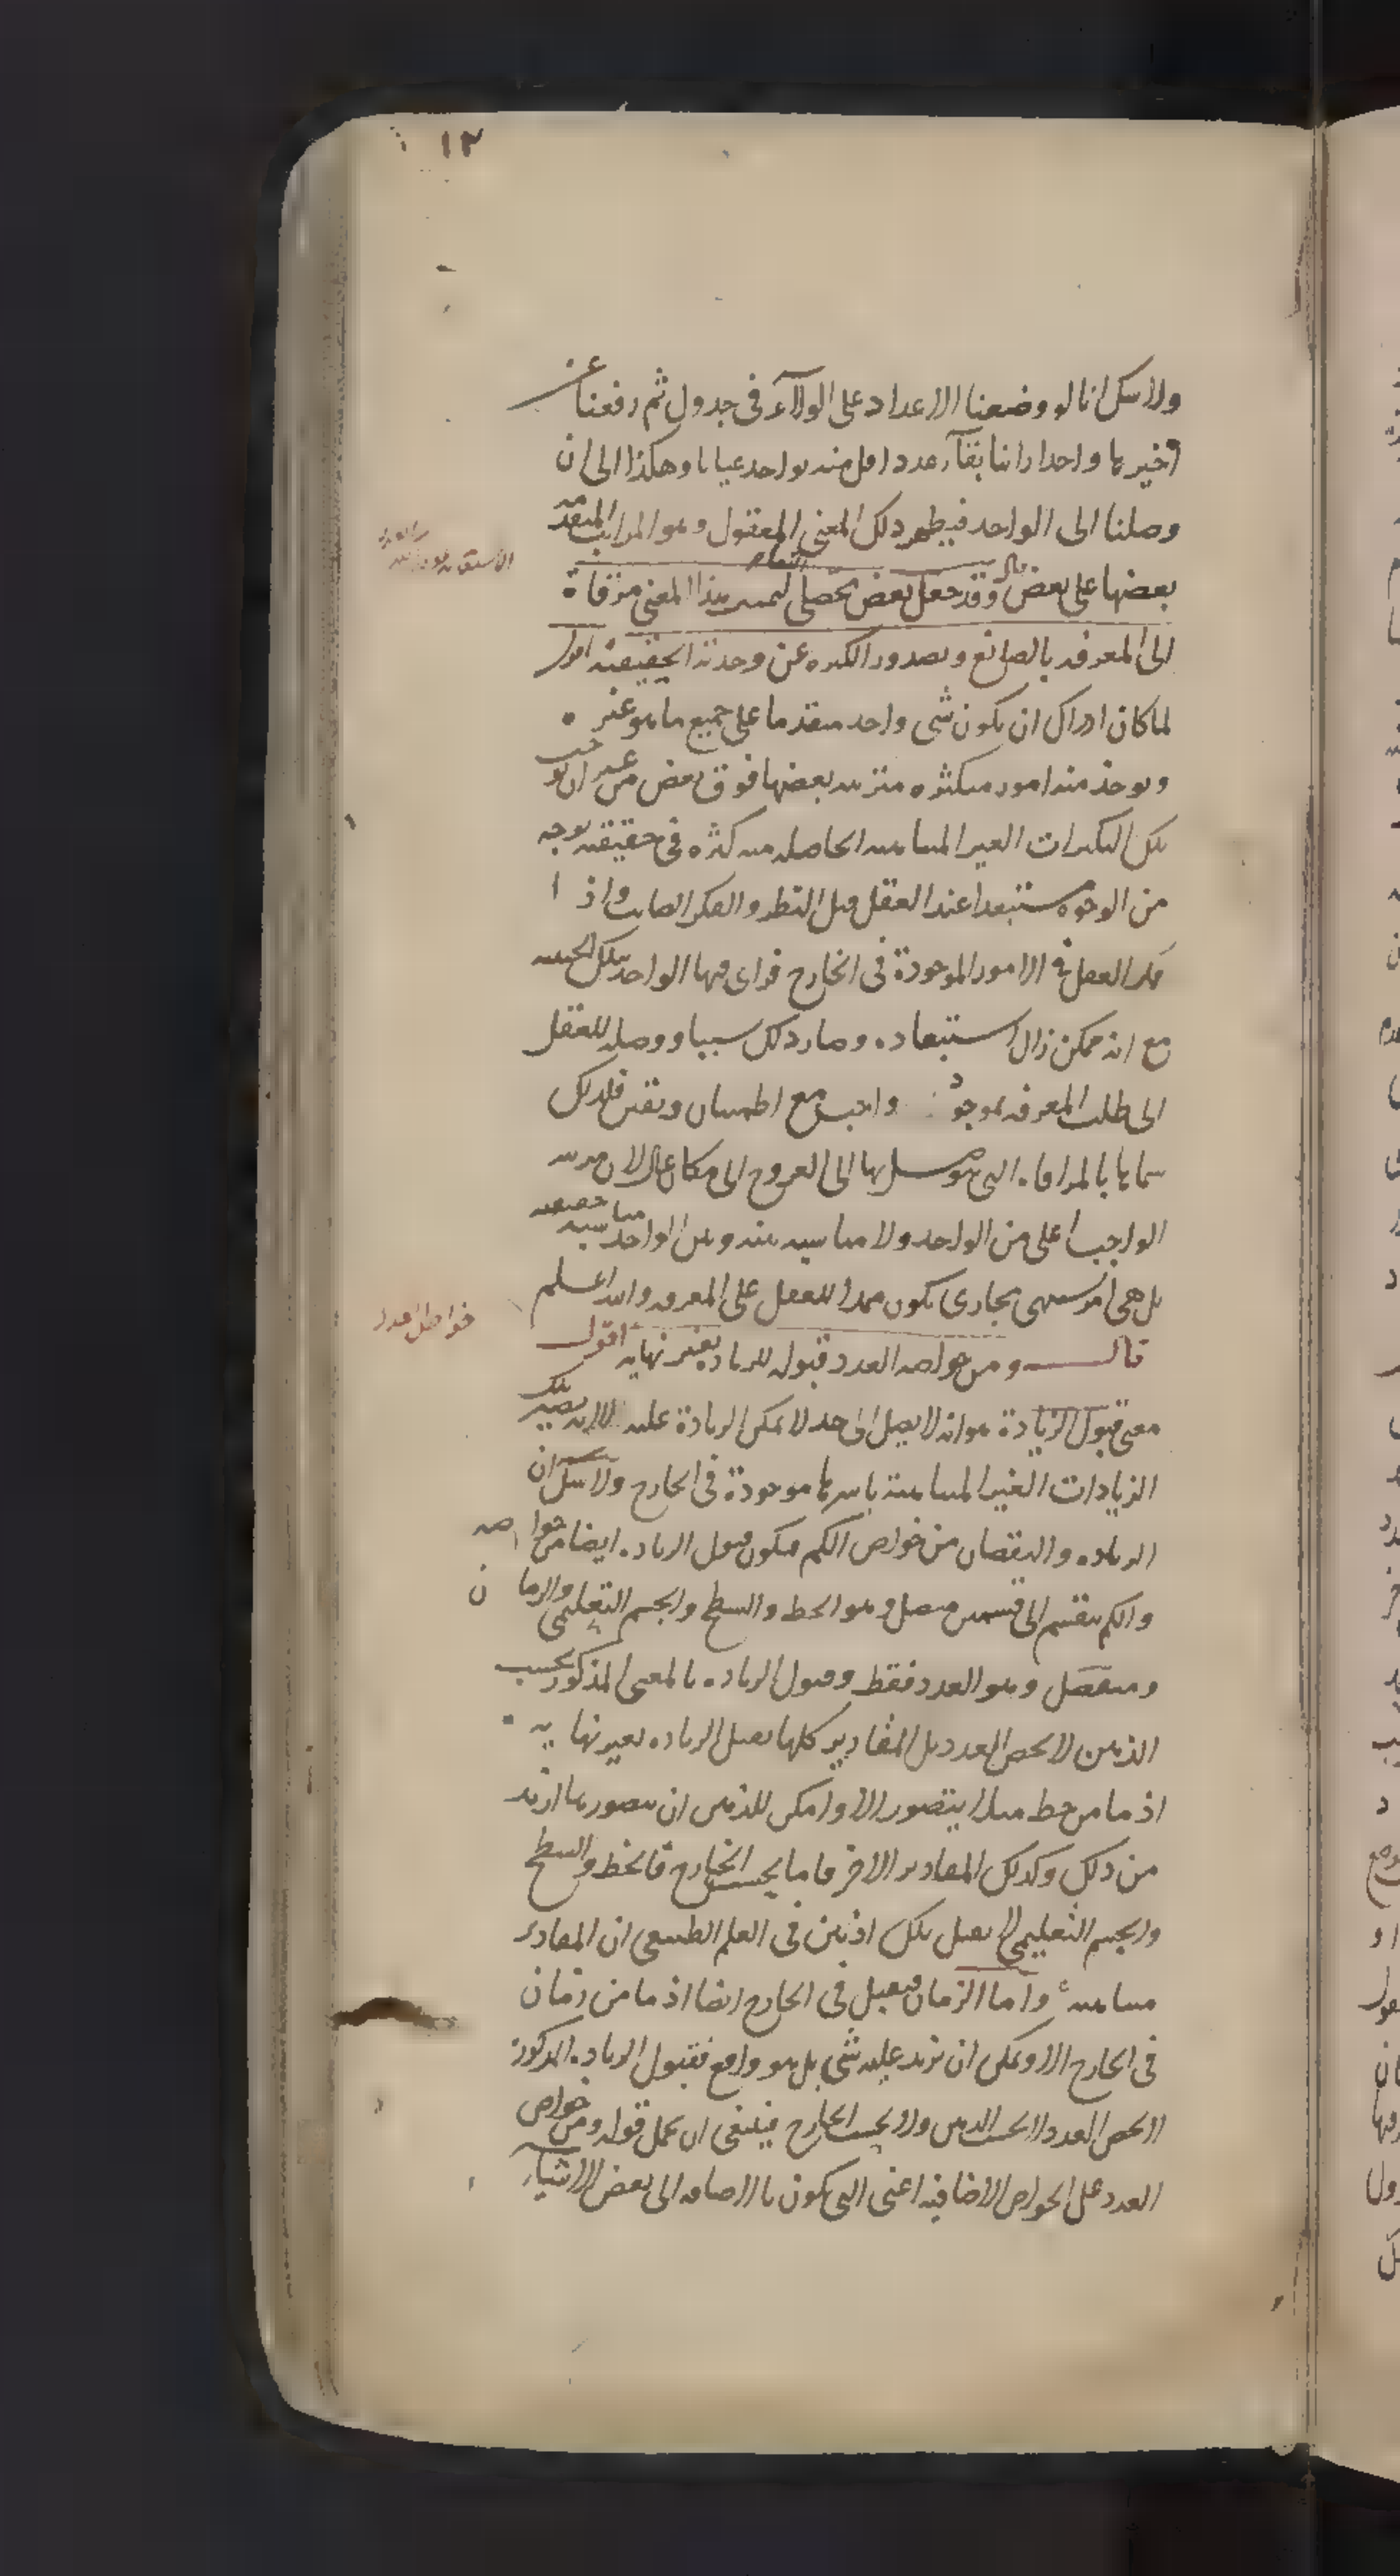 ١٢
ولا شك انا لو وضعنا الاعداد على الولآء في جدول ثم رفعنا عن
اخيرها واحدا راينا بقآء عدد اقل منه بواحد عيانا وهكذا الى ان
وصلنا الى الواحد فيظهر ذلك المعنى المعقول وهو المراتب المتقدمة
بعضها على بعض قال وقد جعل بعض محصلي هذا المعنى مرقاة
الى المعرفه بالصانع وبصدور الكثره عن وحدته الحقيقيه اقول
لما كان ادراك ان يكون شي واحد متقدما على جميع ما هو غيره
ويوخذ منه امور متكثره مترتبه بعضها فوق بعض من غير ان يوجب
تلك التكثرات الغير المتناهيه الحاصله منه كثره في حقيقته بوجه
من الوجوه مستبعدا عند العقل قبل النظر والفكر الصايب واذا
فكر العقل في الامور الموجودة في الخارج فراى فيها الواحد بتلك الحيثيه
مع انه ممكن زال استبعاده وصار ذلك سببا ووصله للعقل
الى طلب المعرفه بموجود واجب مع اطمينان ويقين فلذلك
سماها بالمرقاه التي يتوسل بها الى العروج الى مكان عال لان مرتبه
الواجب اعلى من الواحد ولا مناسبه بينه وبين الواحد مناسبه حقيقيه
بل هي امر مجازى يكون ممدا للعقل على المعرفه والله اعلم
خواص العدد
قال ومن خواصه العدد قبوله للزياده بغير نهايه اقول
معنى قبول الزيادة هو انه لا يصل الى حد لا يمكن الزيادة عليه لا انه يصير تلك
الزيادات الغير المتناهية باسرها موجودة في الخارج ولا شك ان
الزياده والنقصان من خواص الكم فيكون قبول الزياده ايضا من خواصه
والكم ينقسم الى قسمين متصل وهو الخط والسطح والجسم التعليمي والزمان
ومنفصل وهو العدد فقط وقبول الزياده بالمعنى المذكور بحسب
الذهن لا يخص العدد بل المقادير كلها يقبل الزياده بغير نهايه
اذ ما من خط مثلا يتصور الا وامكن للذهن ان يتصور ما ازيد
من ذلك وكذلك المقادير الاخر فاما بحسب الخارج فالخط والسطح
والجسم التعليمي لا يقبل تلك اذ بين في العلم الطبيعي ان المقادير
متناهيه واما الزمان فيقبل في الخارج ايضا اذ ما من زمان
في الخارج الا ويمكن ان يزيد عليه شي بل هو واقع فقبول الزياده المذكوره
لا يخص العدد لا بحسب الذهن ولا بحسب الخارج فينبغي ان يحمل قوله ومن خواص
العدد على الخواص الاضافيه اعني التي يكون بالاضافه الى بعض الاشيآء